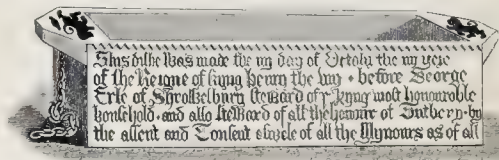 This dishe was made the iiij day of Octobr the iiij yere
of the Reigne of kyng henry the viij · before George
Erle of Steward of ye kyng most honourable
household · and also Steward of all the honour of Tutbery · by
the assent and Consent aswele of all the Mynours as of all